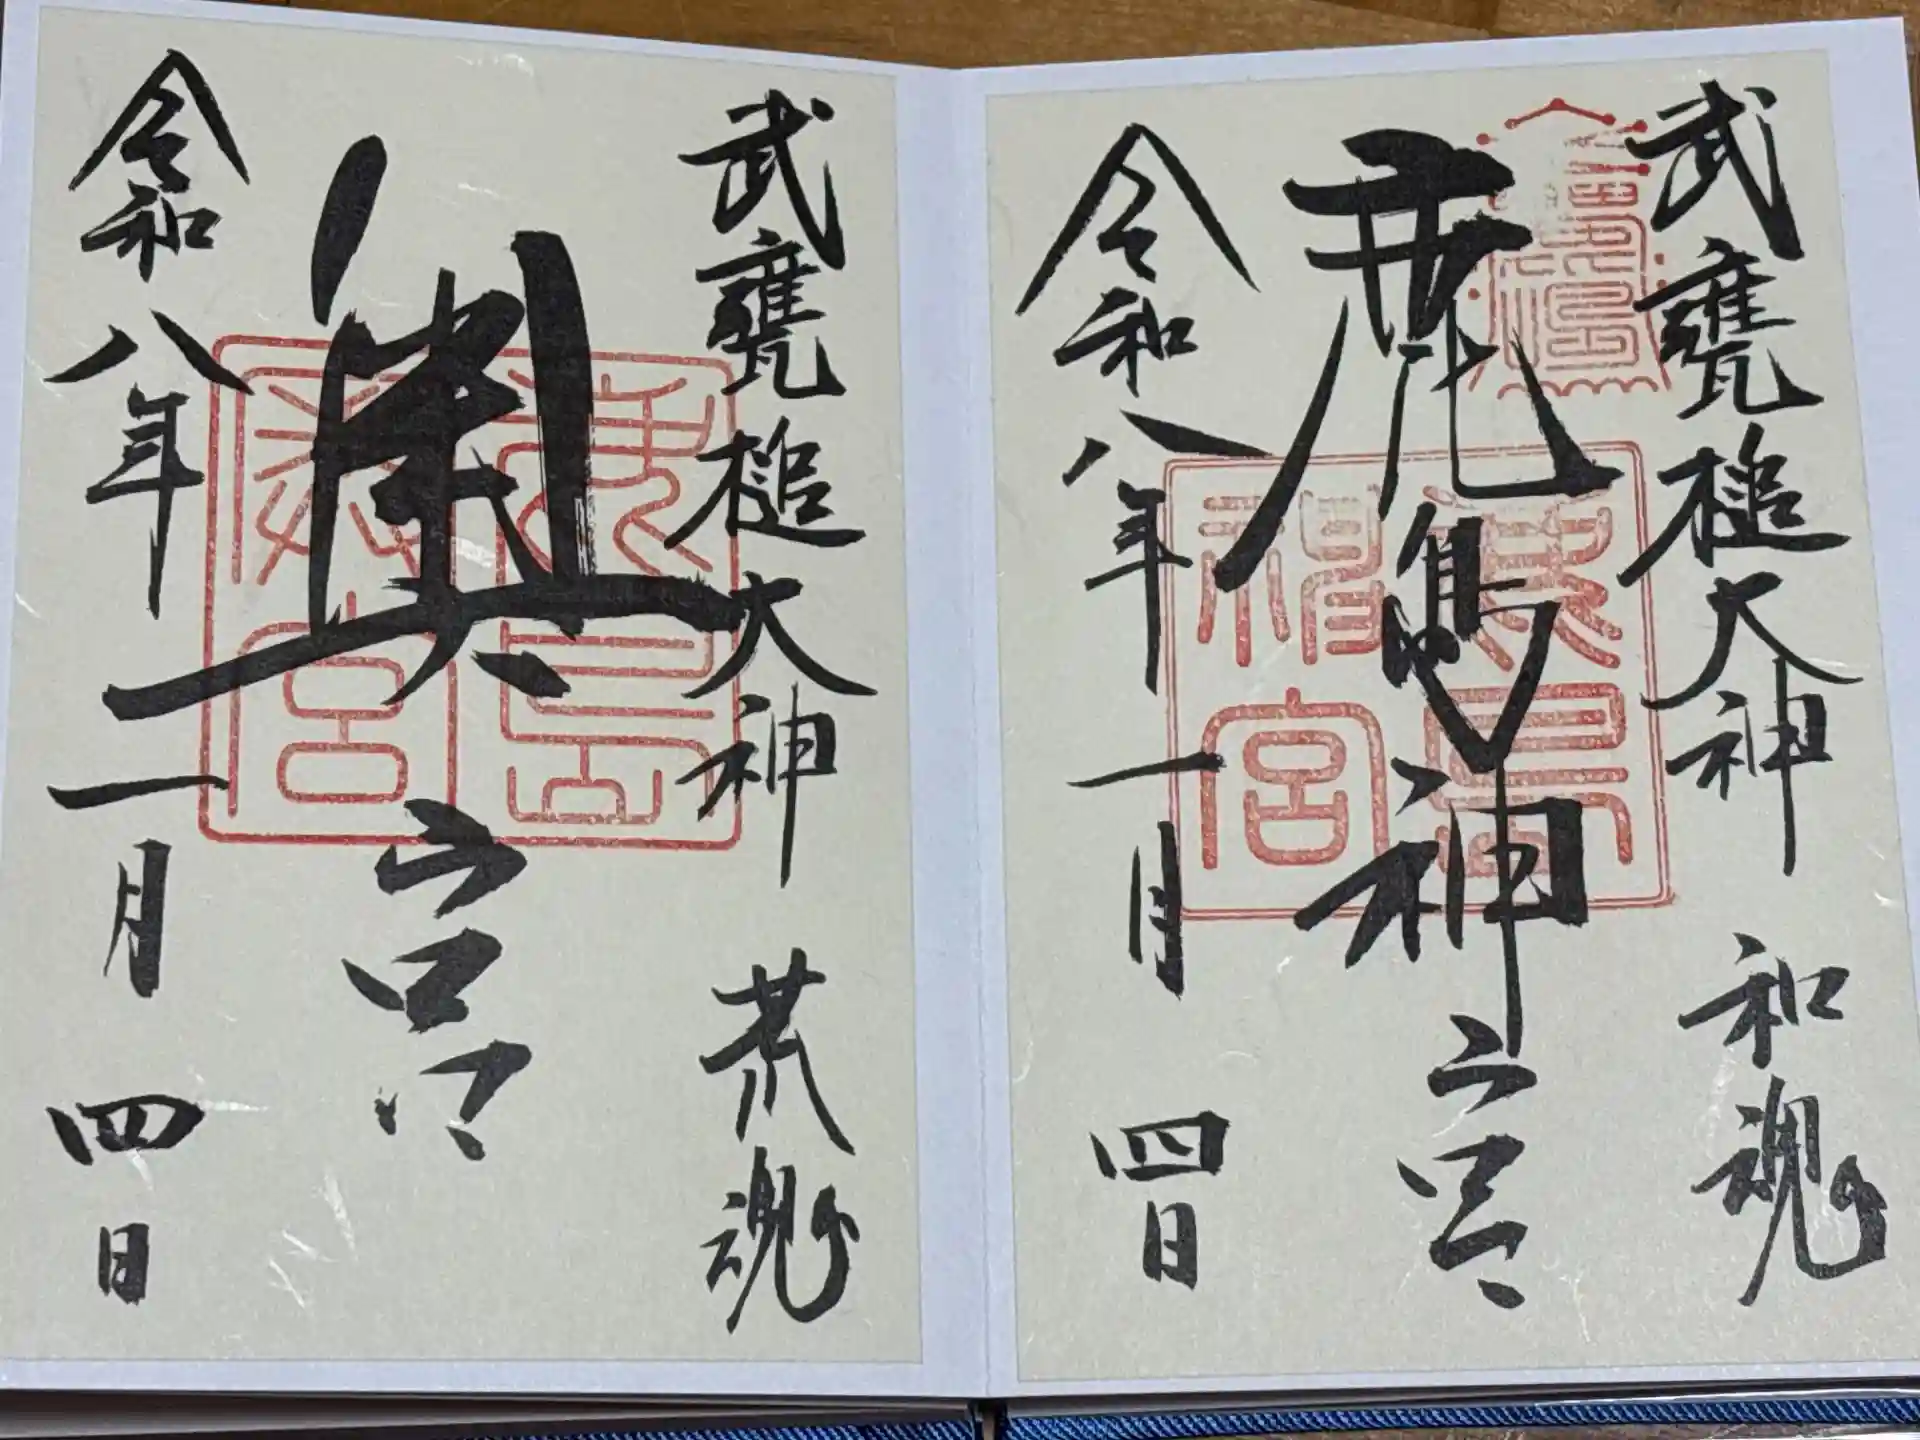 武甕槌大神 和魂
鹿島神宮
令和八年一月四日
武甕槌大神 荒魂
奥宮
令和八年一月四日
鹿島神宮